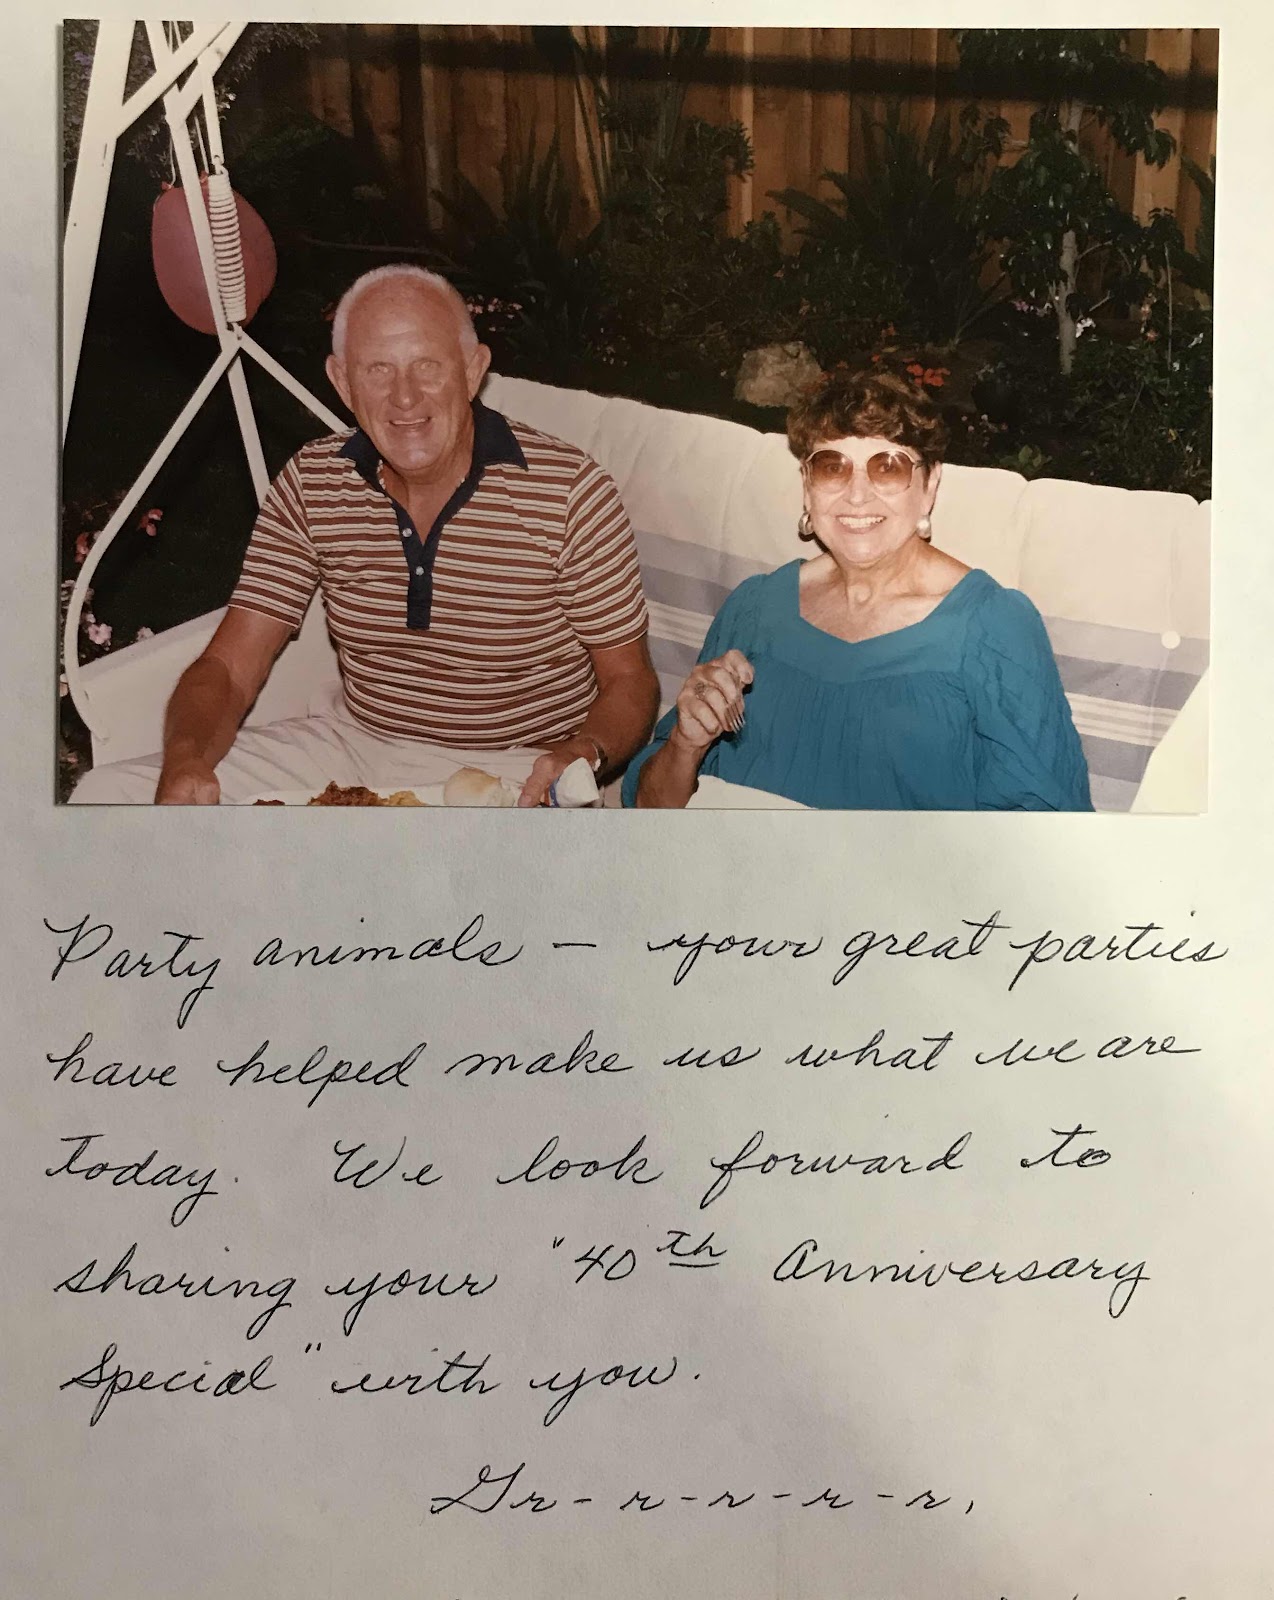 Party animals — your great parties
have helped make us what we are
today. We look forward to
sharing your "40th Anniversary
Special" with you.
Gr-r-r-r-r,